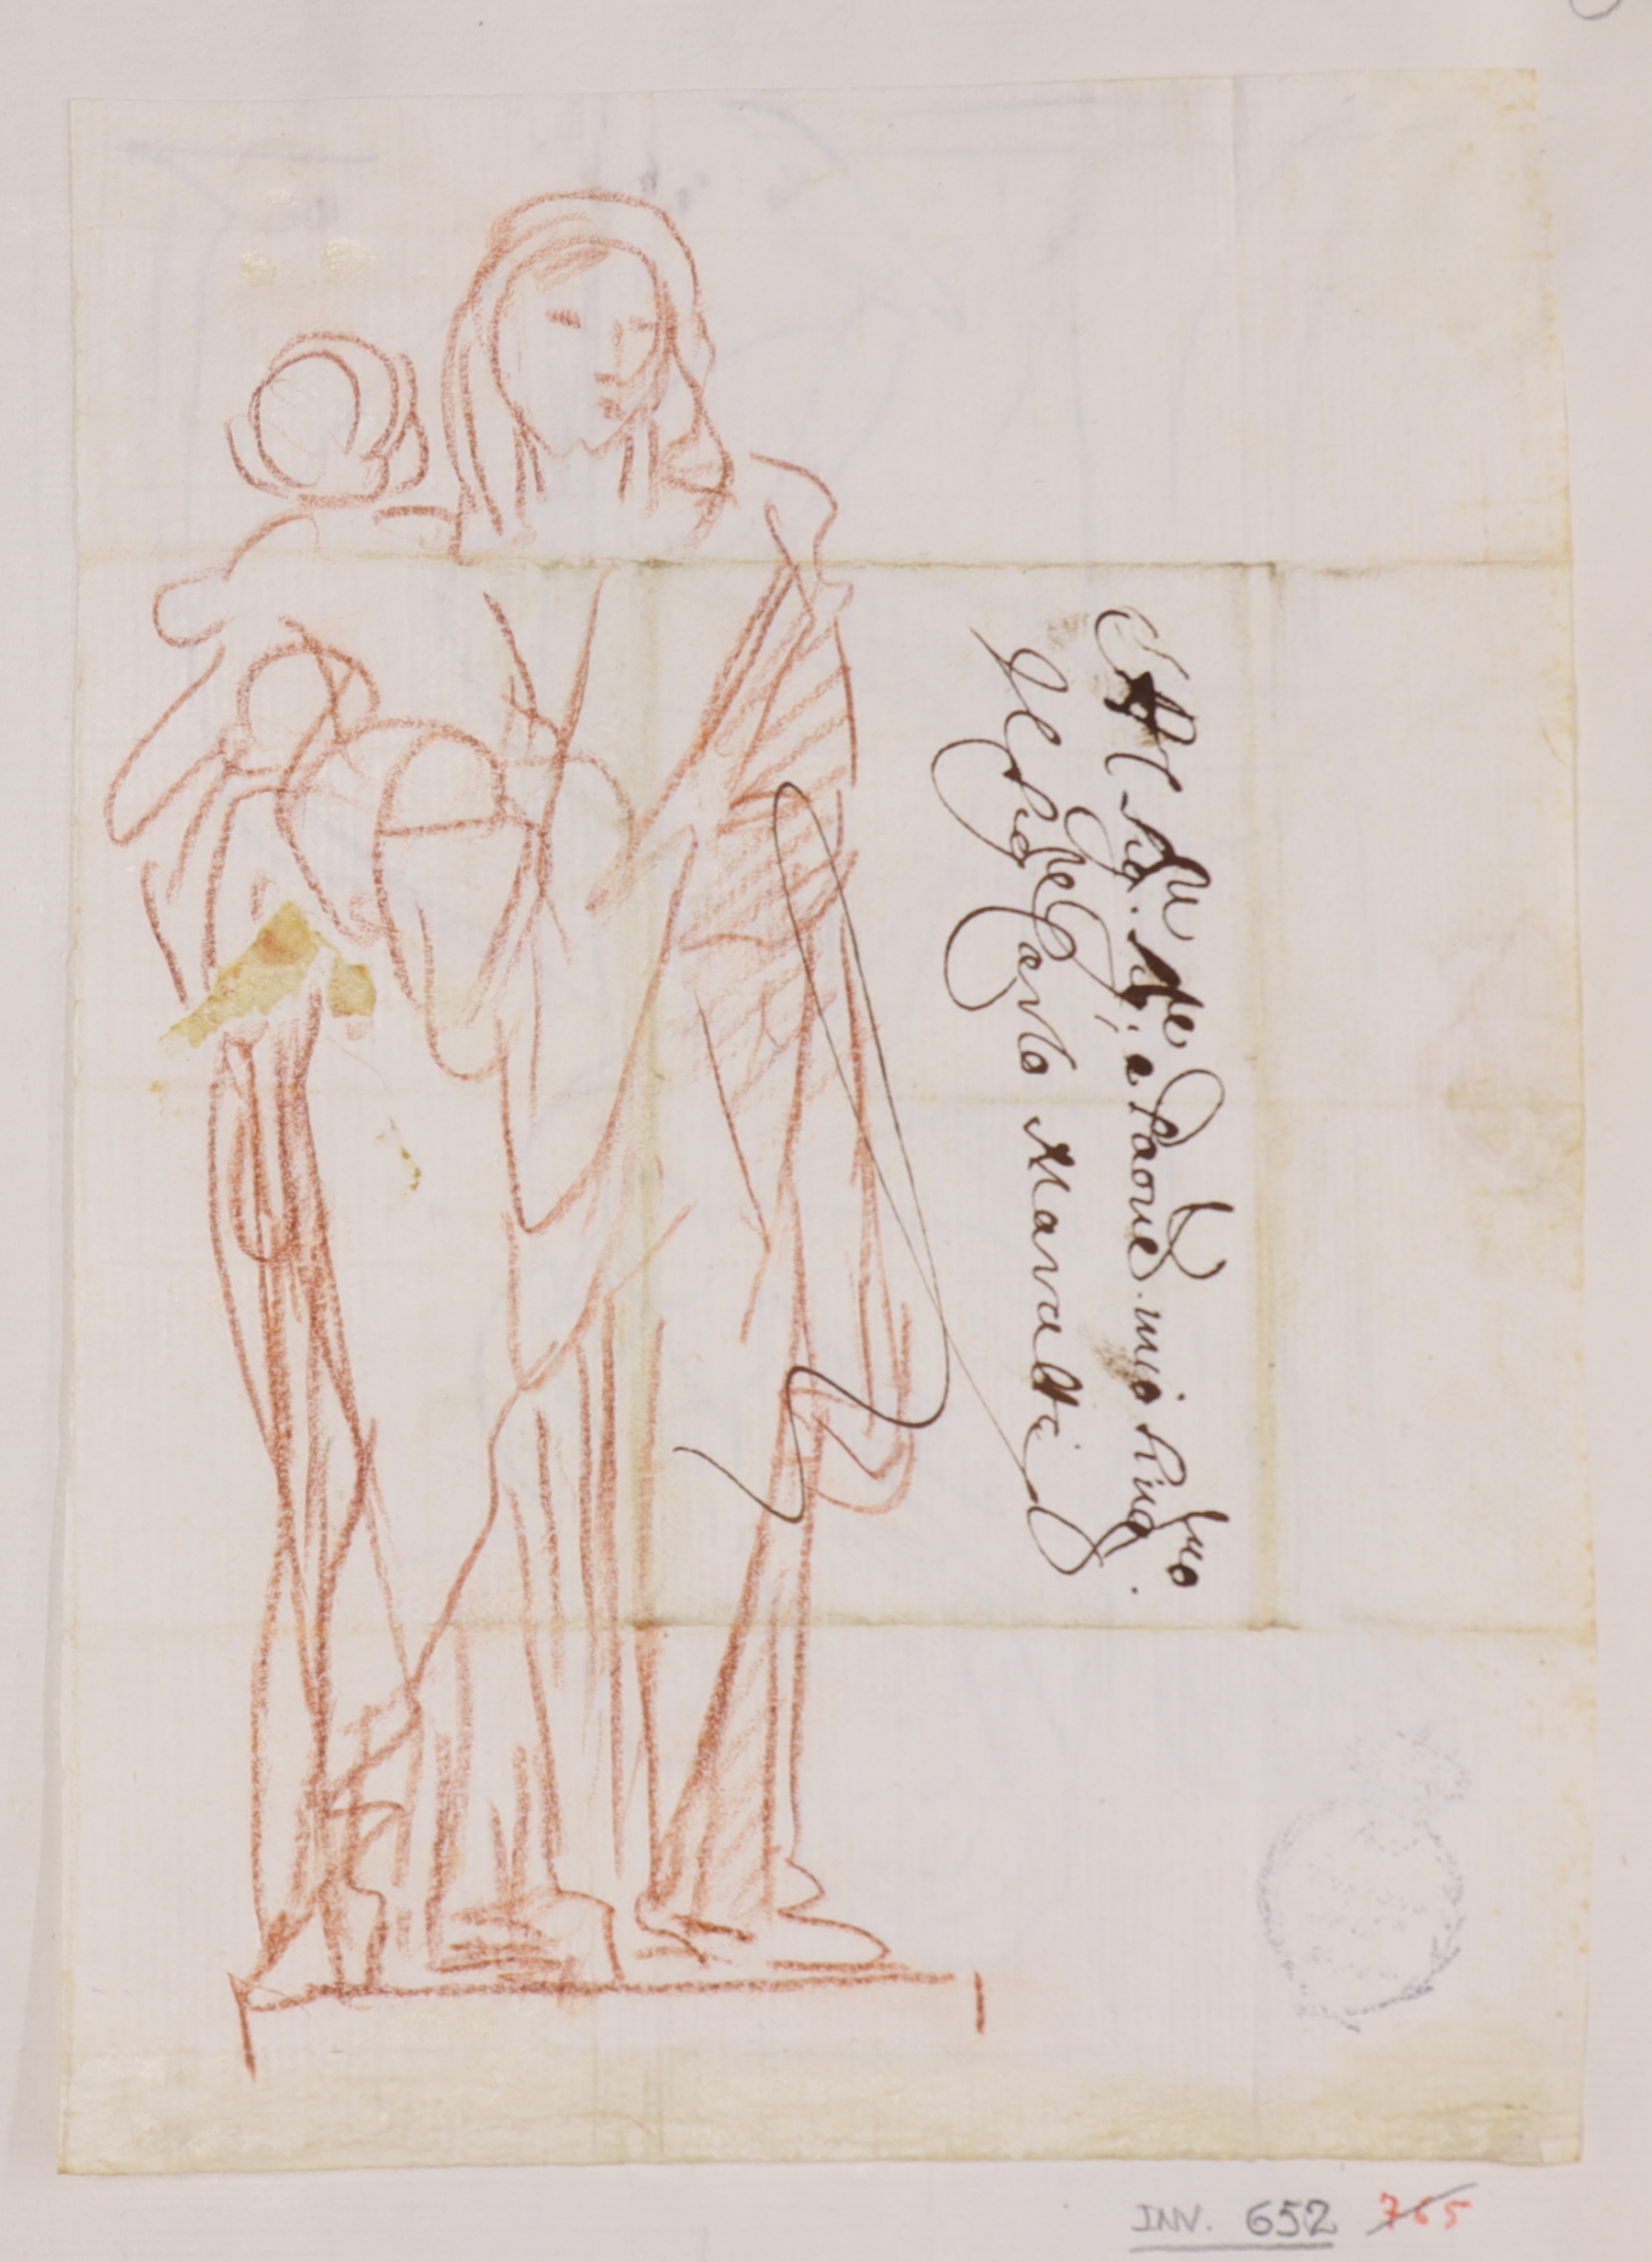 Al Sig.re Sig.re e Padrone mio Sing.mo
Il Sig.re Carlo Maratti
INV. 652 765